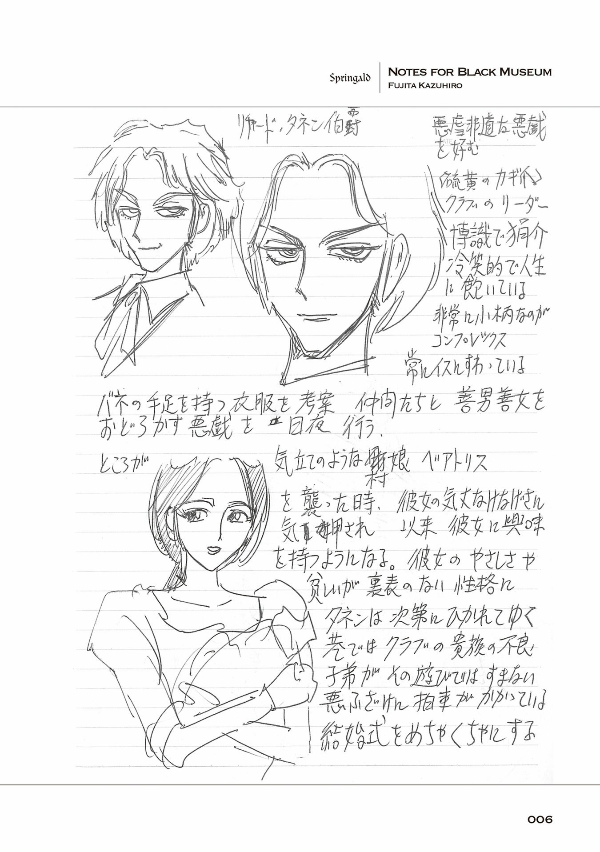 Springald
NOTES FOR BLACK MUSEUM
FUJITA KAZUHIRO
リチャード・タネン伯爵
悪虐非道な悪戯
を好む
硫黄のカギ爪
クラブのリーダー
博識で狷介
冷笑的で人生
に飽いている
非常に小柄なのが
コンプレックス
常にイスにすわっている
バネの手足を持つ衣服を考案 仲間たちと 善男善女を
おどろかす悪戯を 日夜 行う、
ところが
気立てのような 村娘 ベアトリス
を襲った時、彼女の気丈なけなげさに
気押され 以来 彼女に興味
を持つようになる。彼女のやさしさや
貧しいが裏表のない性格に
タネンは次第にひかれてゆく
巷ではクラブの貴族の不良
子弟が その遊びではすまない
悪ふざけに拍車がかかっている
結婚式をめちゃくちゃにする
006